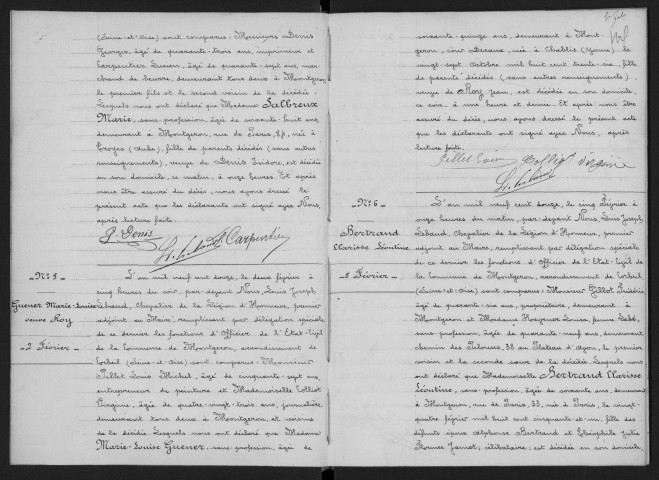 (Seine-et-Oise) sont comparus Messieurs Denis
Georges, âgé de quarante-trois ans, imprimeur et
Carpentier Lucien, âgé de quarante-sept ans, mar-
chand de beurre, demeurant tous deux à Montgeron
le premier fils et le second voisin de la décédée.
Lesquels nous ont déclaré que Madame Salbreux
Marie, sans profession, âgée de soixante-huit ans,
demeurant à Montgeron, rue de Paris, née à
Troyes (Aube), fille de parents décédés (sans autres
renseignements), veuve de Denis Isidore, est décédée
en son domicile, ce matin, à onze heures. Et après
nous être assuré du décès, nous avons dressé le
présent acte que les déclarants ont signé avec Nous,
après lecture faite.
G. Denis Carpentier
N° 5
Guener Marie-Louise
veuve Roy
2 Février
L'an mil neuf cent douze, le deux février à
cinq heures du soir, par-devant Nous, Louis Joseph
Lebaud, Chevalier de la Légion d'Honneur, premier
adjoint au Maire, remplissant par délégation spéciale
de ce dernier les fonctions d'Officier de l'Etat-Civil
de la Commune de Montgeron, arrondissement de
Corbeil (Seine-et-Oise) sont comparus : Monsieur
Pillet Louis Michel, âgé de cinquante-sept ans,
entrepreneur de peinture et Mademoiselle Colliot
Virginie, âgée de quatre-vingt-trois ans, journalière,
demeurant tous deux à Montgeron, et voisins
de la décédée. Lesquels nous ont déclaré que Madame
Marie-Louise Guener, sans profession, âgée de
soixante-quinze ans, demeurant à Mont-
geron, née à Chablis (Yonne) le
vingt-sept Octobre mil huit cent trente-six, fille
de parents décédés (sans autres renseignements),
veuve de Roy Jean, est décédée en son domicile,
ce soir, à une heure et demie. Et après nous être
assuré du décès, nous avons dressé le présent acte
que les déclarants ont signé avec Nous, après
lecture faite.
Pillet Louis Virginie
N° 6
Bertrand
Clarisse Léontine
5 Février
L'an mil neuf cent douze, le cinq Février à
onze heures du matin, par-devant Nous, Louis Joseph
Lebaud, Chevalier de la Légion d'Honneur, premier
adjoint au Maire, remplissant par délégation spéciale
de ce dernier les fonctions d'Officier de l'Etat-Civil
de la Commune de Montgeron, arrondissement de Corbeil
(Seine-et-Oise) sont comparus : Monsieur Gillot Frédéric
âgé de quarante-six ans, propriétaire, demeurant à
Montgeron et Madame Louise, femme
âgée de quarante-neuf ans, demeurant
chemin des Pelouses, 38 au Plateau d'Avron, le premier
voisin et la seconde sœur de la décédée. Lesquels nous
ont déclaré que Mademoiselle Bertrand Clarisse
Léontine, sans profession, âgée de soixante ans, demeurant
à Montgeron, rue de Paris, 33, née à Paris, le vingt-
quatre février mil huit cent cinquante-et-un, fille des
défunts époux Alphonse Bertrand et Théophile Julie
Florence Jamot ; célibataire ; est décédée en son domicile,